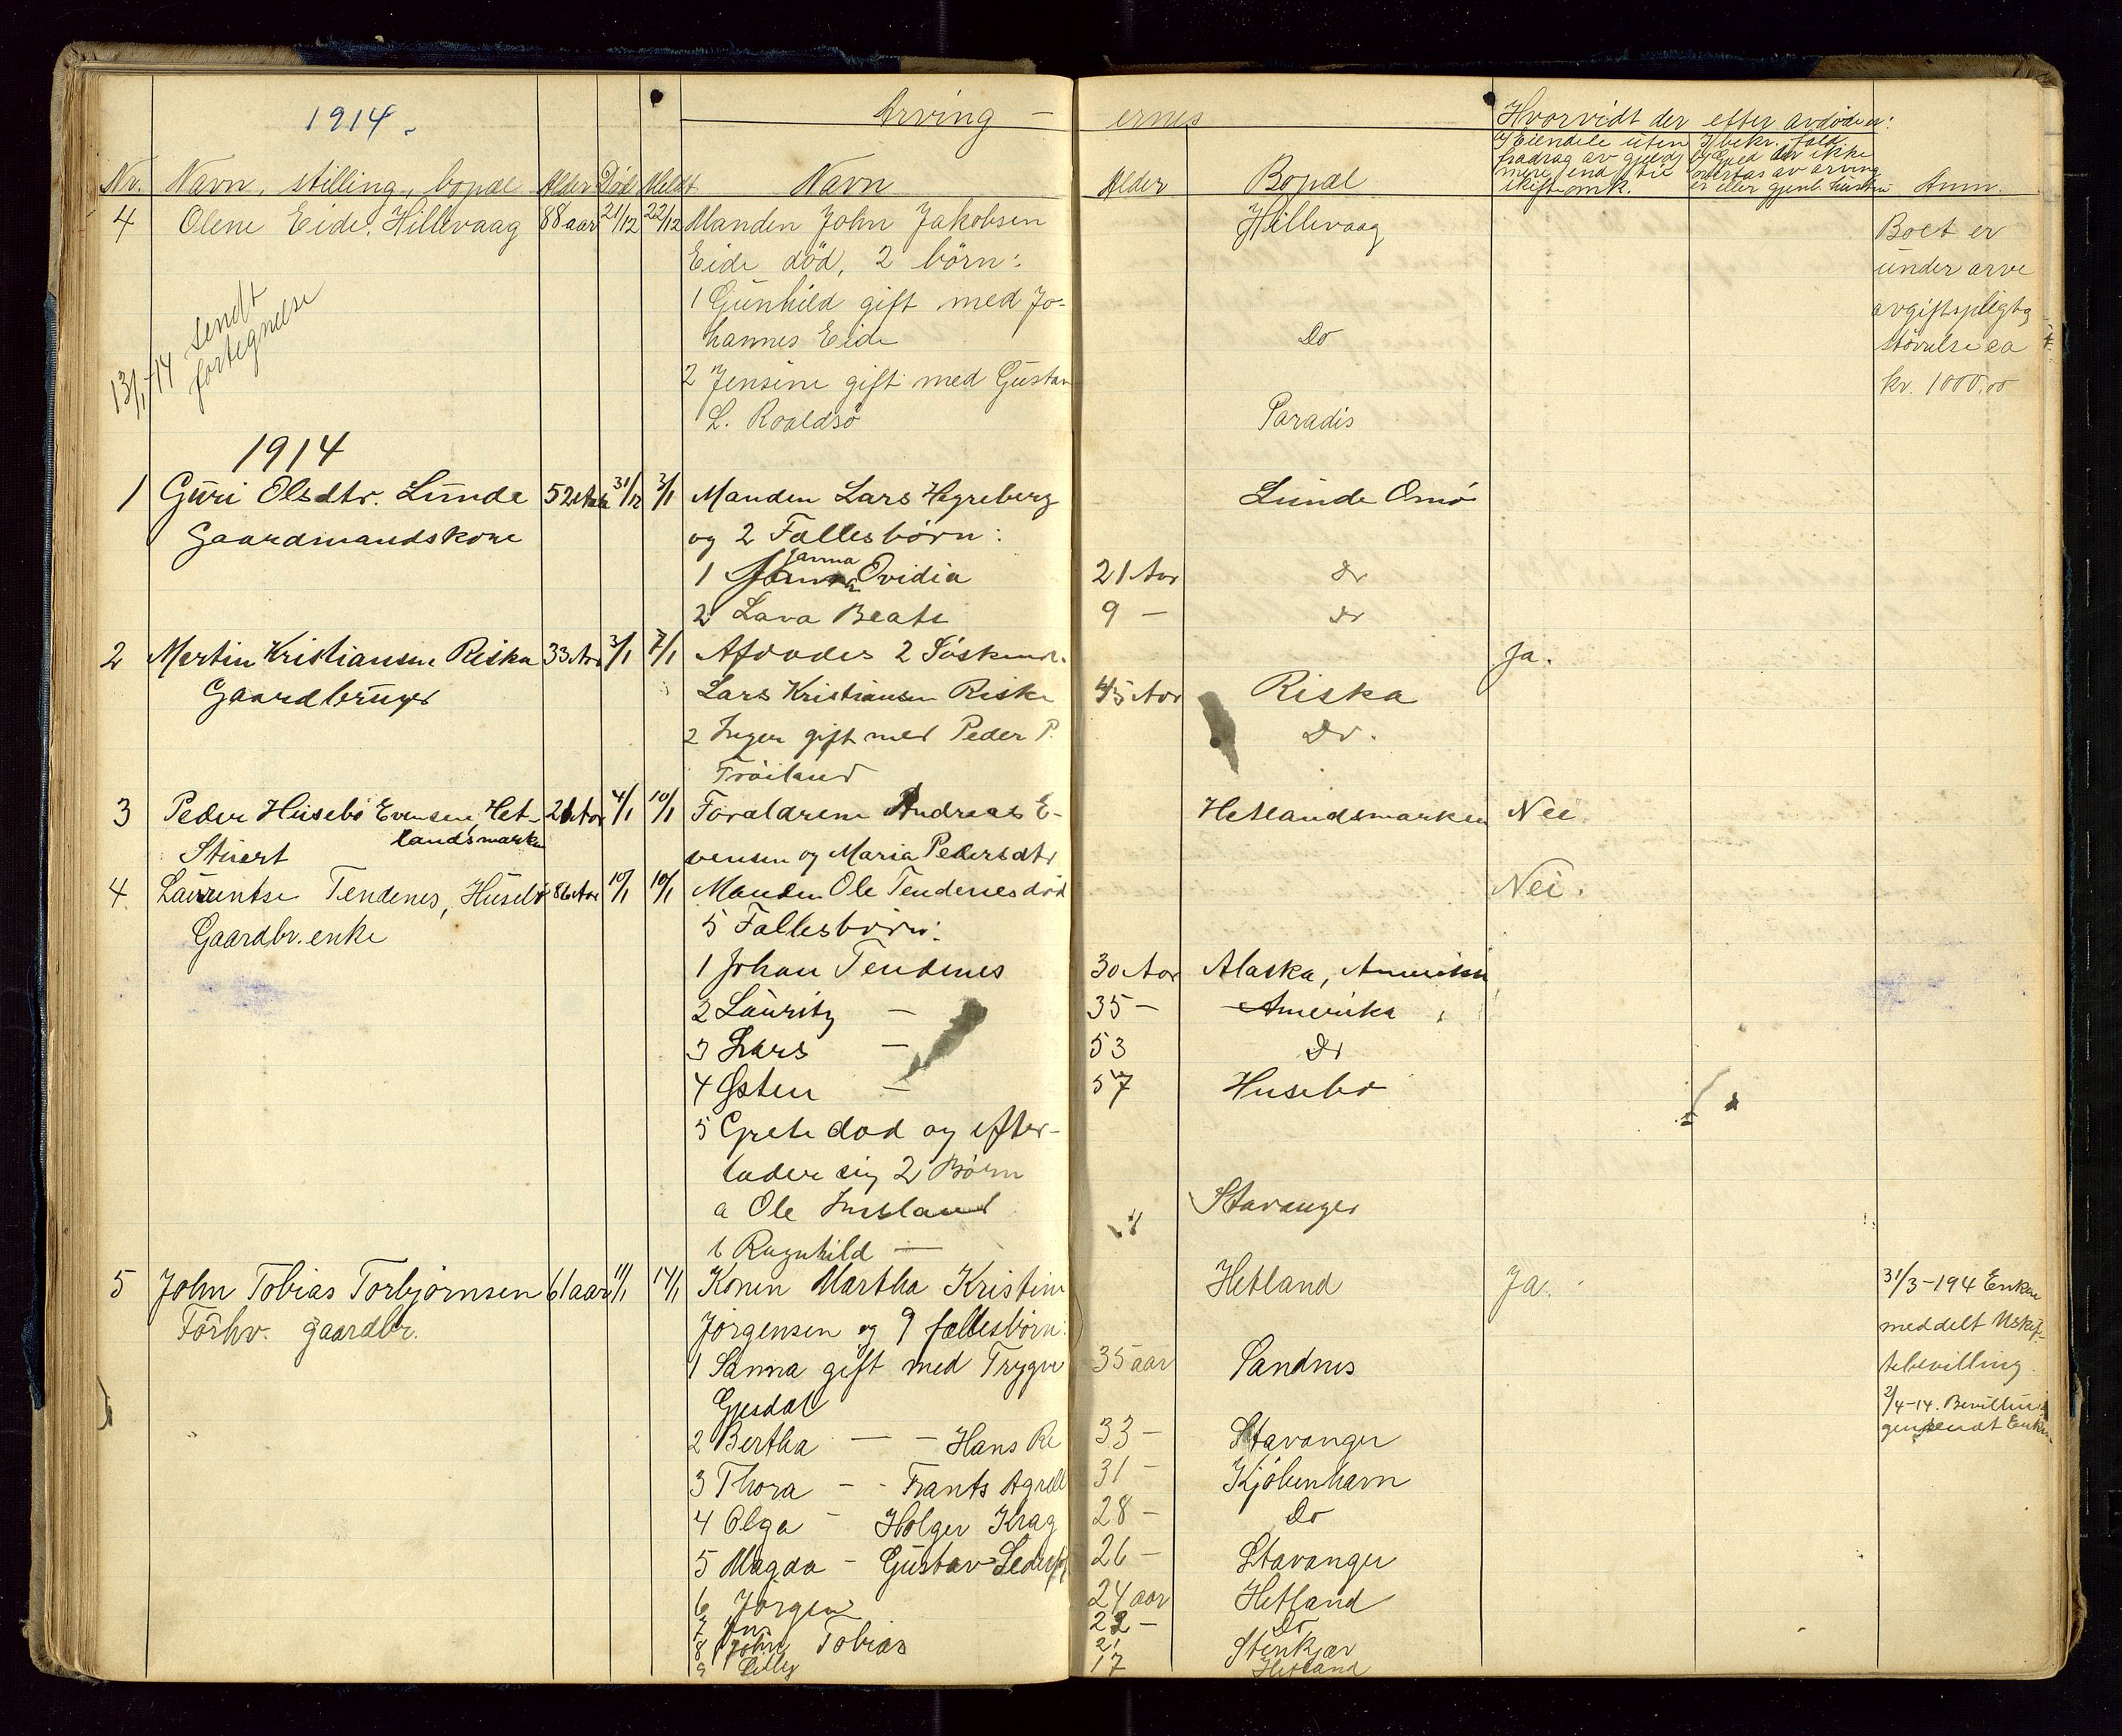 1914.
Arving - ernes
Hvorvidt der efter avdöde er:
Nr. Navn, stilling, bopæl Alder Död Meldt Navn Alder Bopæl a/ Eiendele uten fradrag av gjeld mere end til skiftesomk. Anm.
4 Olene Eide, Hillevaag 88 aar 21/12 22/12 Manden John Jakobsen Hillevaag Boet er
Eide död, 2 börn: under arve
1 Gunhild gift med Jo- avgiftspligtig
hannes Eide Do störrelse ca
2 Jensine gift med Gustav kr. 1000,00
L. Roaldsö Paradis
13/1-14 sendt
fortegnelse
1914
1 Guri Olsdtr. Lunde 52 Aar 31/12 3/1 Manden Lars Hegreberg Lunde Omö
Gaardmandskone og 2 Fællesbörn:
Janna
1 Ovidia 21 Aar do
2 Lava Beate 9 - do
2 Martin Kristiansen Riska 33 Aar 3/1 7/1 Afdödes 2 Söskende Ja.
Gaardbruger Lars Kristiansen Riska 45 Aar Riska
2 Inger gift med Peder P. Do.
Tröiland
3 Peder Husebö Evensen, Het- 21 Aar 4/1 10/1 Forældrene Andreas E- Hetlandsmarken Nei
landsmarken
Stuert vensen og Maria Pedersdtr
4 Laurentse Tendenes, Husebö 86 Aar 10/1 10/1 Manden Ole Tendenes död Nei.
Gaardbr. enke 5 Fællesbörn:
1 Johan Tendenes 30 Aar Alaska, Amerika
2 Lauritz - 35 - Amerika
3 Lars - 53 Do
4 Osten - 57 Husebö
5 Grete död og efter-
lader sig 2 Börn
a Ole Imsland Stavanger
b Ragnhild - "
5 John Tobias Torbjörnsen 61 aar 11/1 14/1 Konen Martha Kristine Hetland Ja. 31/3-1914 Enken
Forhv. gaardbr. Jörgensen og 9 fællesbörn: meddelt Uskif-
1 Sanna gift med Trygve 35 aar Sandnes tebevilling.
Gjesdal 2/4-14. Bevilling
2 Bertha - - Hans Re 33 - Stavanger gjensendt Enken
3 Thora - - Frants Agrell 31 - Kjöbenhavn
4 Olga - Holger Krag 28 - Do
5 Magda - Gustav 26 - Stavanger
6 Jörgen 24 aar Hetland
7 Jens 22 - Do
8 John Tobias 21 Stenkjær
9 Lilly 17 Hetland